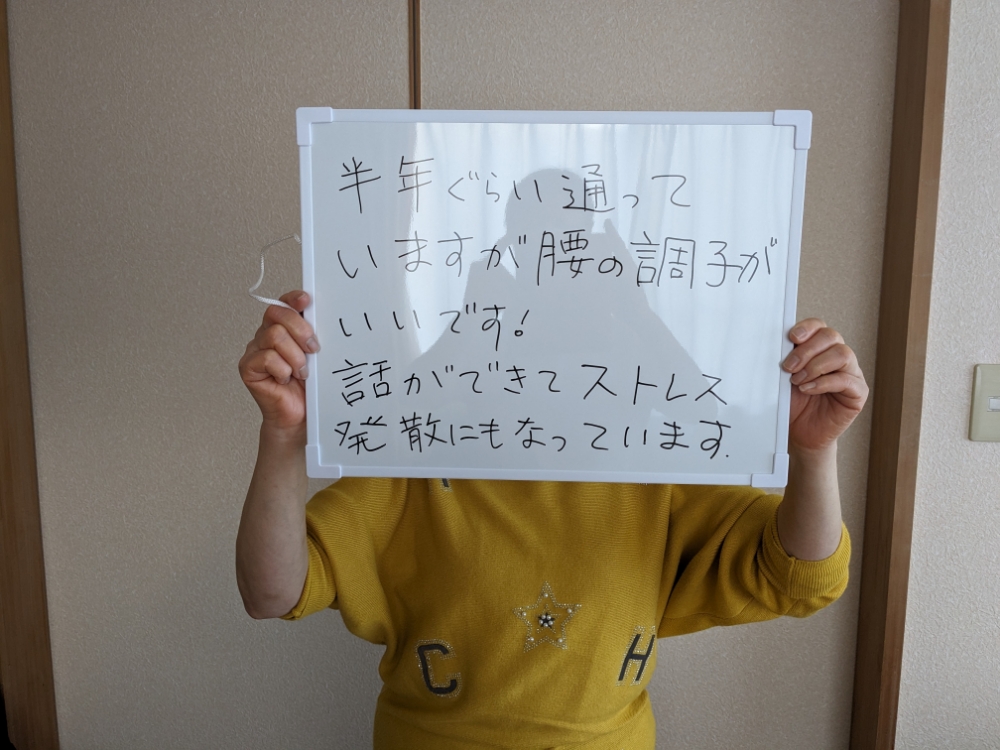 半年ぐらい通って
いますが腰の調子が
いいです!
話ができてストレス
発散にもなっています.
C H